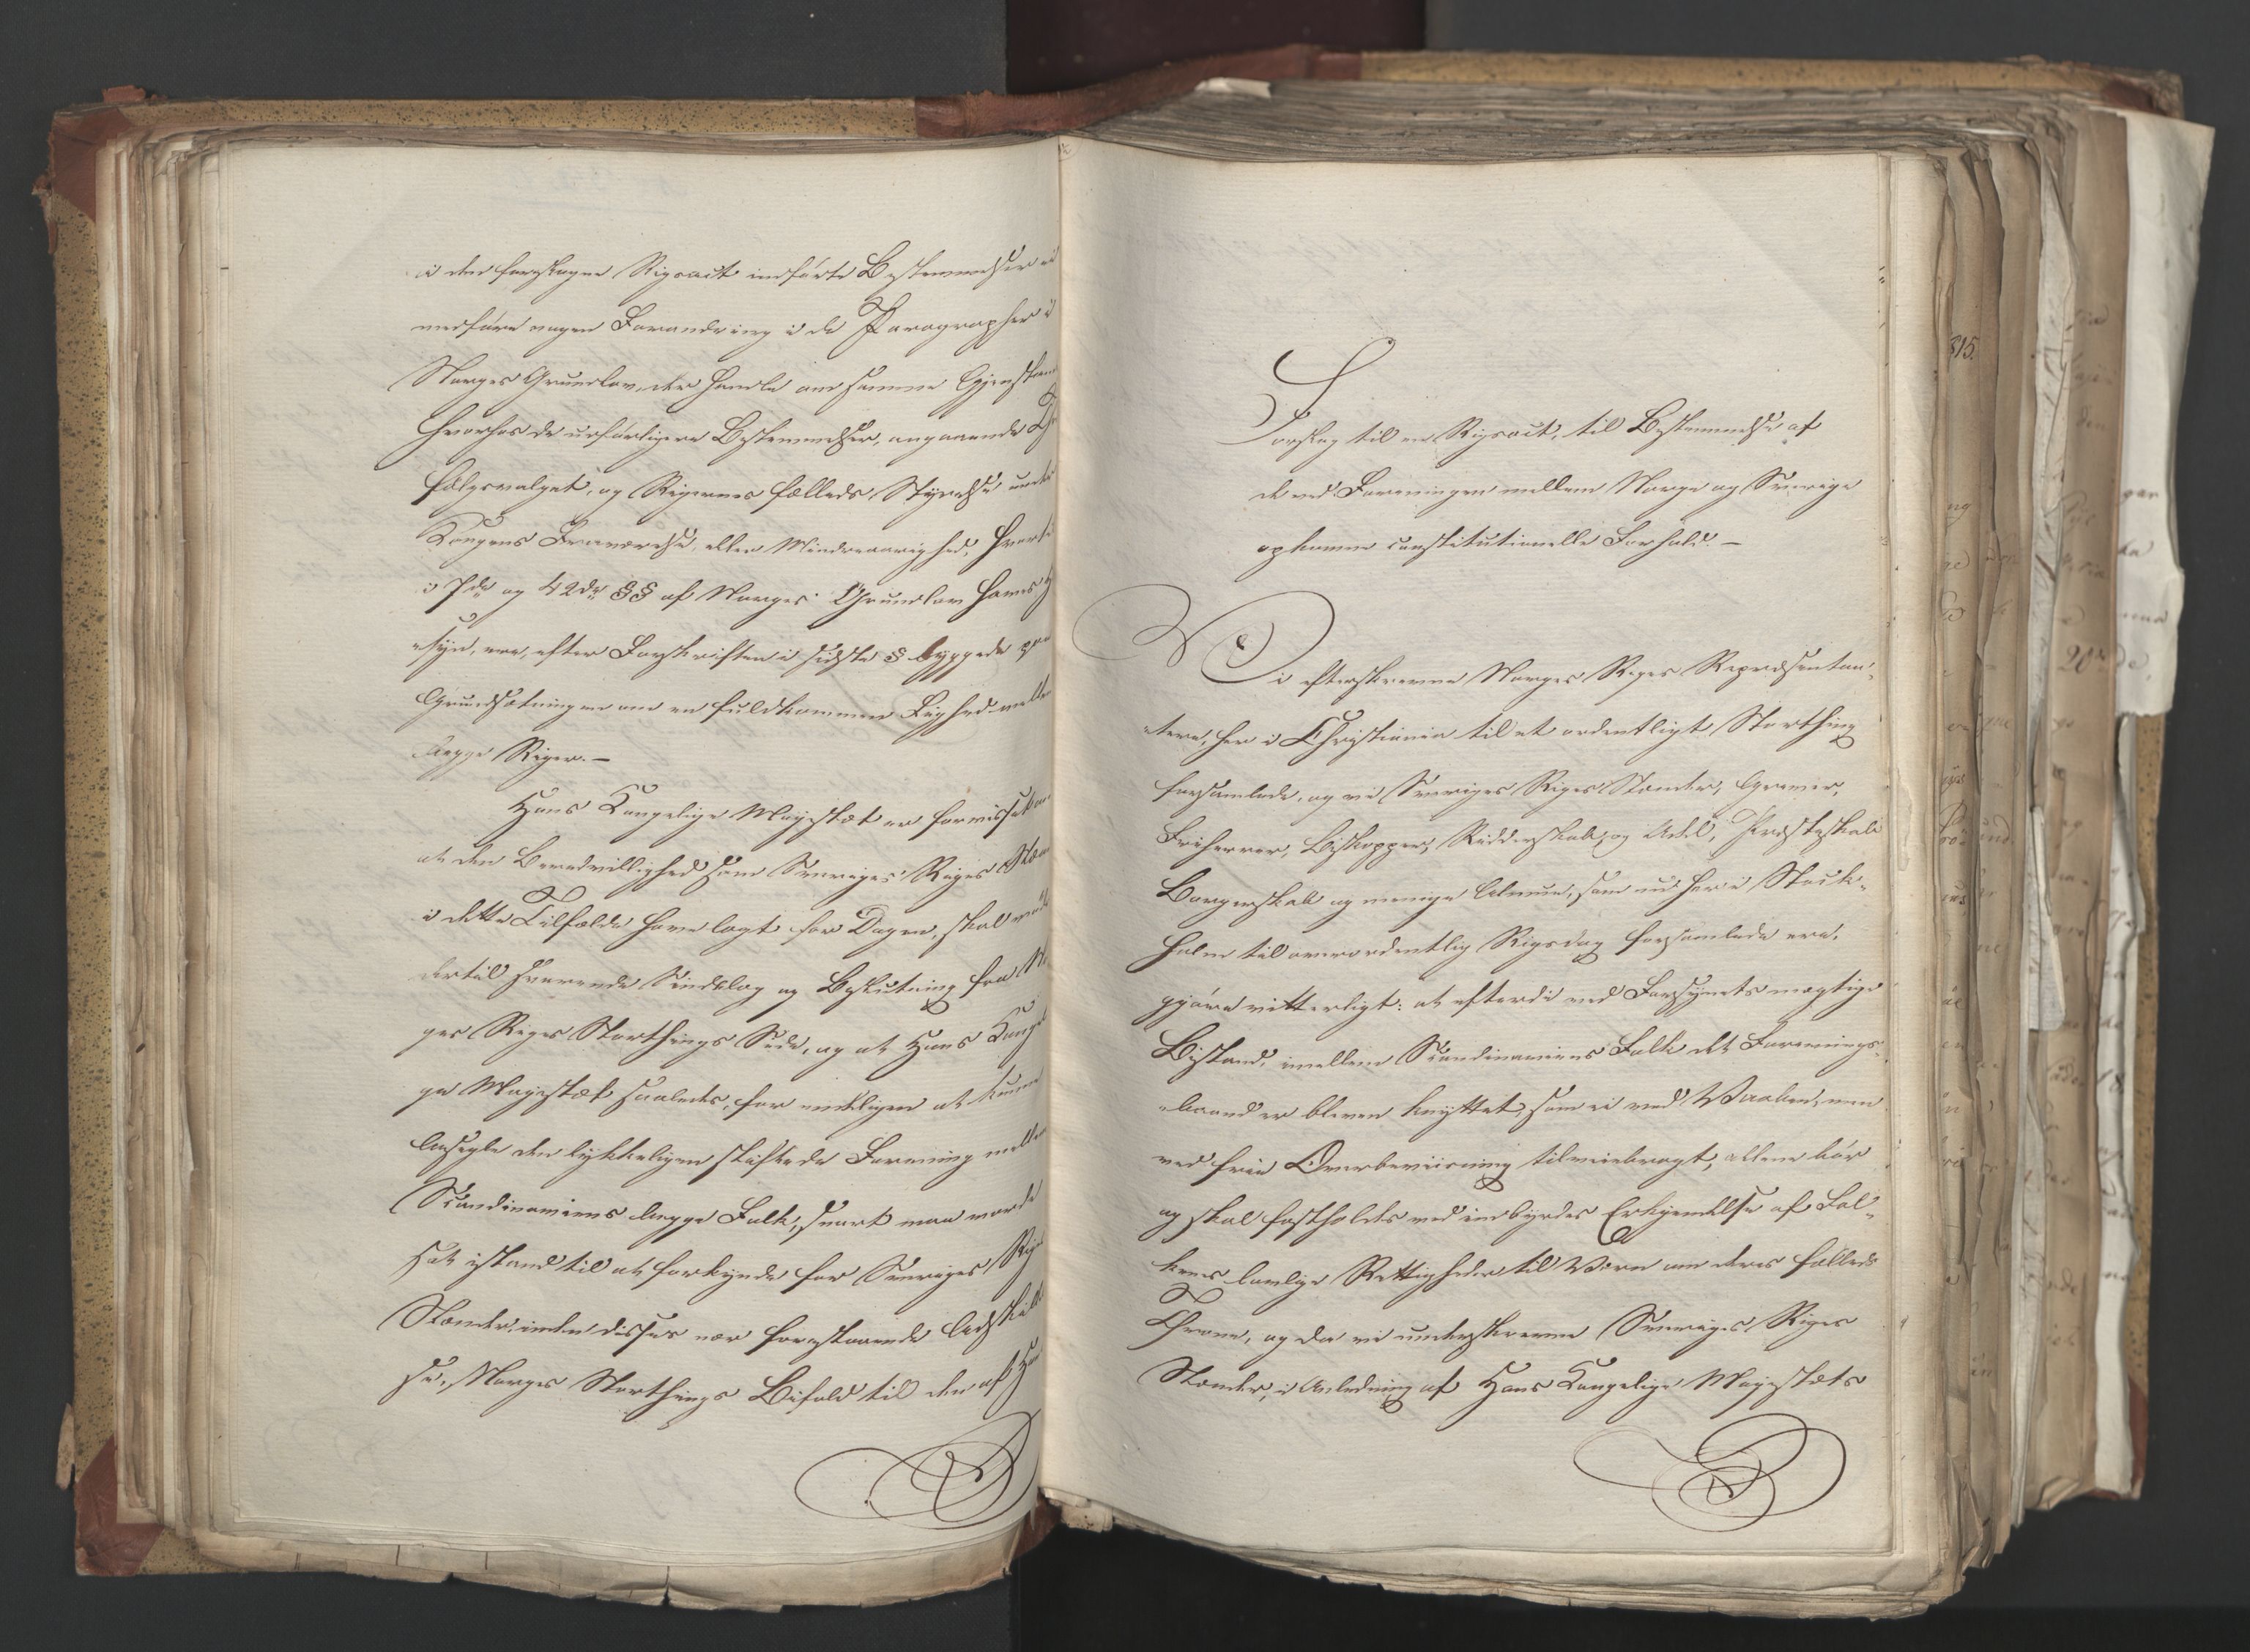 i den foreslagne Rigsact indførte Bestemmelser ei
medføre nogen Forandring i de Paragrapher i
Norges Grundlov, der handle om samme Gjenstand
hvorhos de udførligere Bestemmelser, angaaende Thr
følgevalget, og Rigernes fælleds Styrelse under
Kongens Fraværelse, eller Mindreaarighed, hvortil
i 7de og 42de §§ af Norges Grundlov haves H
-syn, ere, efter Forskriften i sidste § byggede paa
Grundsætningerne om en fuldkommen Lighed mellem
begge Riger. –
Hans Kongelige Majestæt er forvisset om
at den Beredvillighed som Sverriges Riges Stæn
i dette Tilfælde have lagt for Dagen, skal møde
dertil svarende Sindelag og Beslutning fra No
ges Riges Storthings Side, og at Hans Kongel
ge Majestæt saaledes, for endeligen at kunne
besegle den lykkeligen stiftede Forening mellem
Scandinaviens begge Folk, snart maa vorde
sat istand til at forkynde for Sverriges Rige
Stænder, inden disses nær forestaaende Adskillel
se, Norges Storthings Bifald til den af Han
815.
Forslag til en Rigsact, til Bestemmelse af
de ved Foreningen mellem Norge og Sverrige
opkomne constitutionelle Forhold. –
Vi efterskrevne Norges Riges Repræsentan-
-tere, her i Christiania til et ordentligt Storthing
forsamlede, og vi Sverriges Riges Stænder, Grever,
Friherrer, Biskopper, Ridderskab og Adel, Præsteskab
Borgerskab og menige Almue, som nu her i Stock-
holm til overordentlig Rigsdag forsamlede ere,
gjøre vitterligt: at efterdi ved Forsynets mægtige
Bistand, imellem Scandinaviens Folk det Forenings-
-baand er bleven knyttet, som ei ved Vaaben, men
ved frie Overbeviisning tilveiebragt, allene bør
og skal fastholdes ved indbyrdes Erkjendelse af Fol-
kenes lovlige Rettigheder til Værn om deres fælleds
Throne, og da vi underskrevne Sverriges Riges
Stænder, i Anledning af Hans Kongelige Majestæts